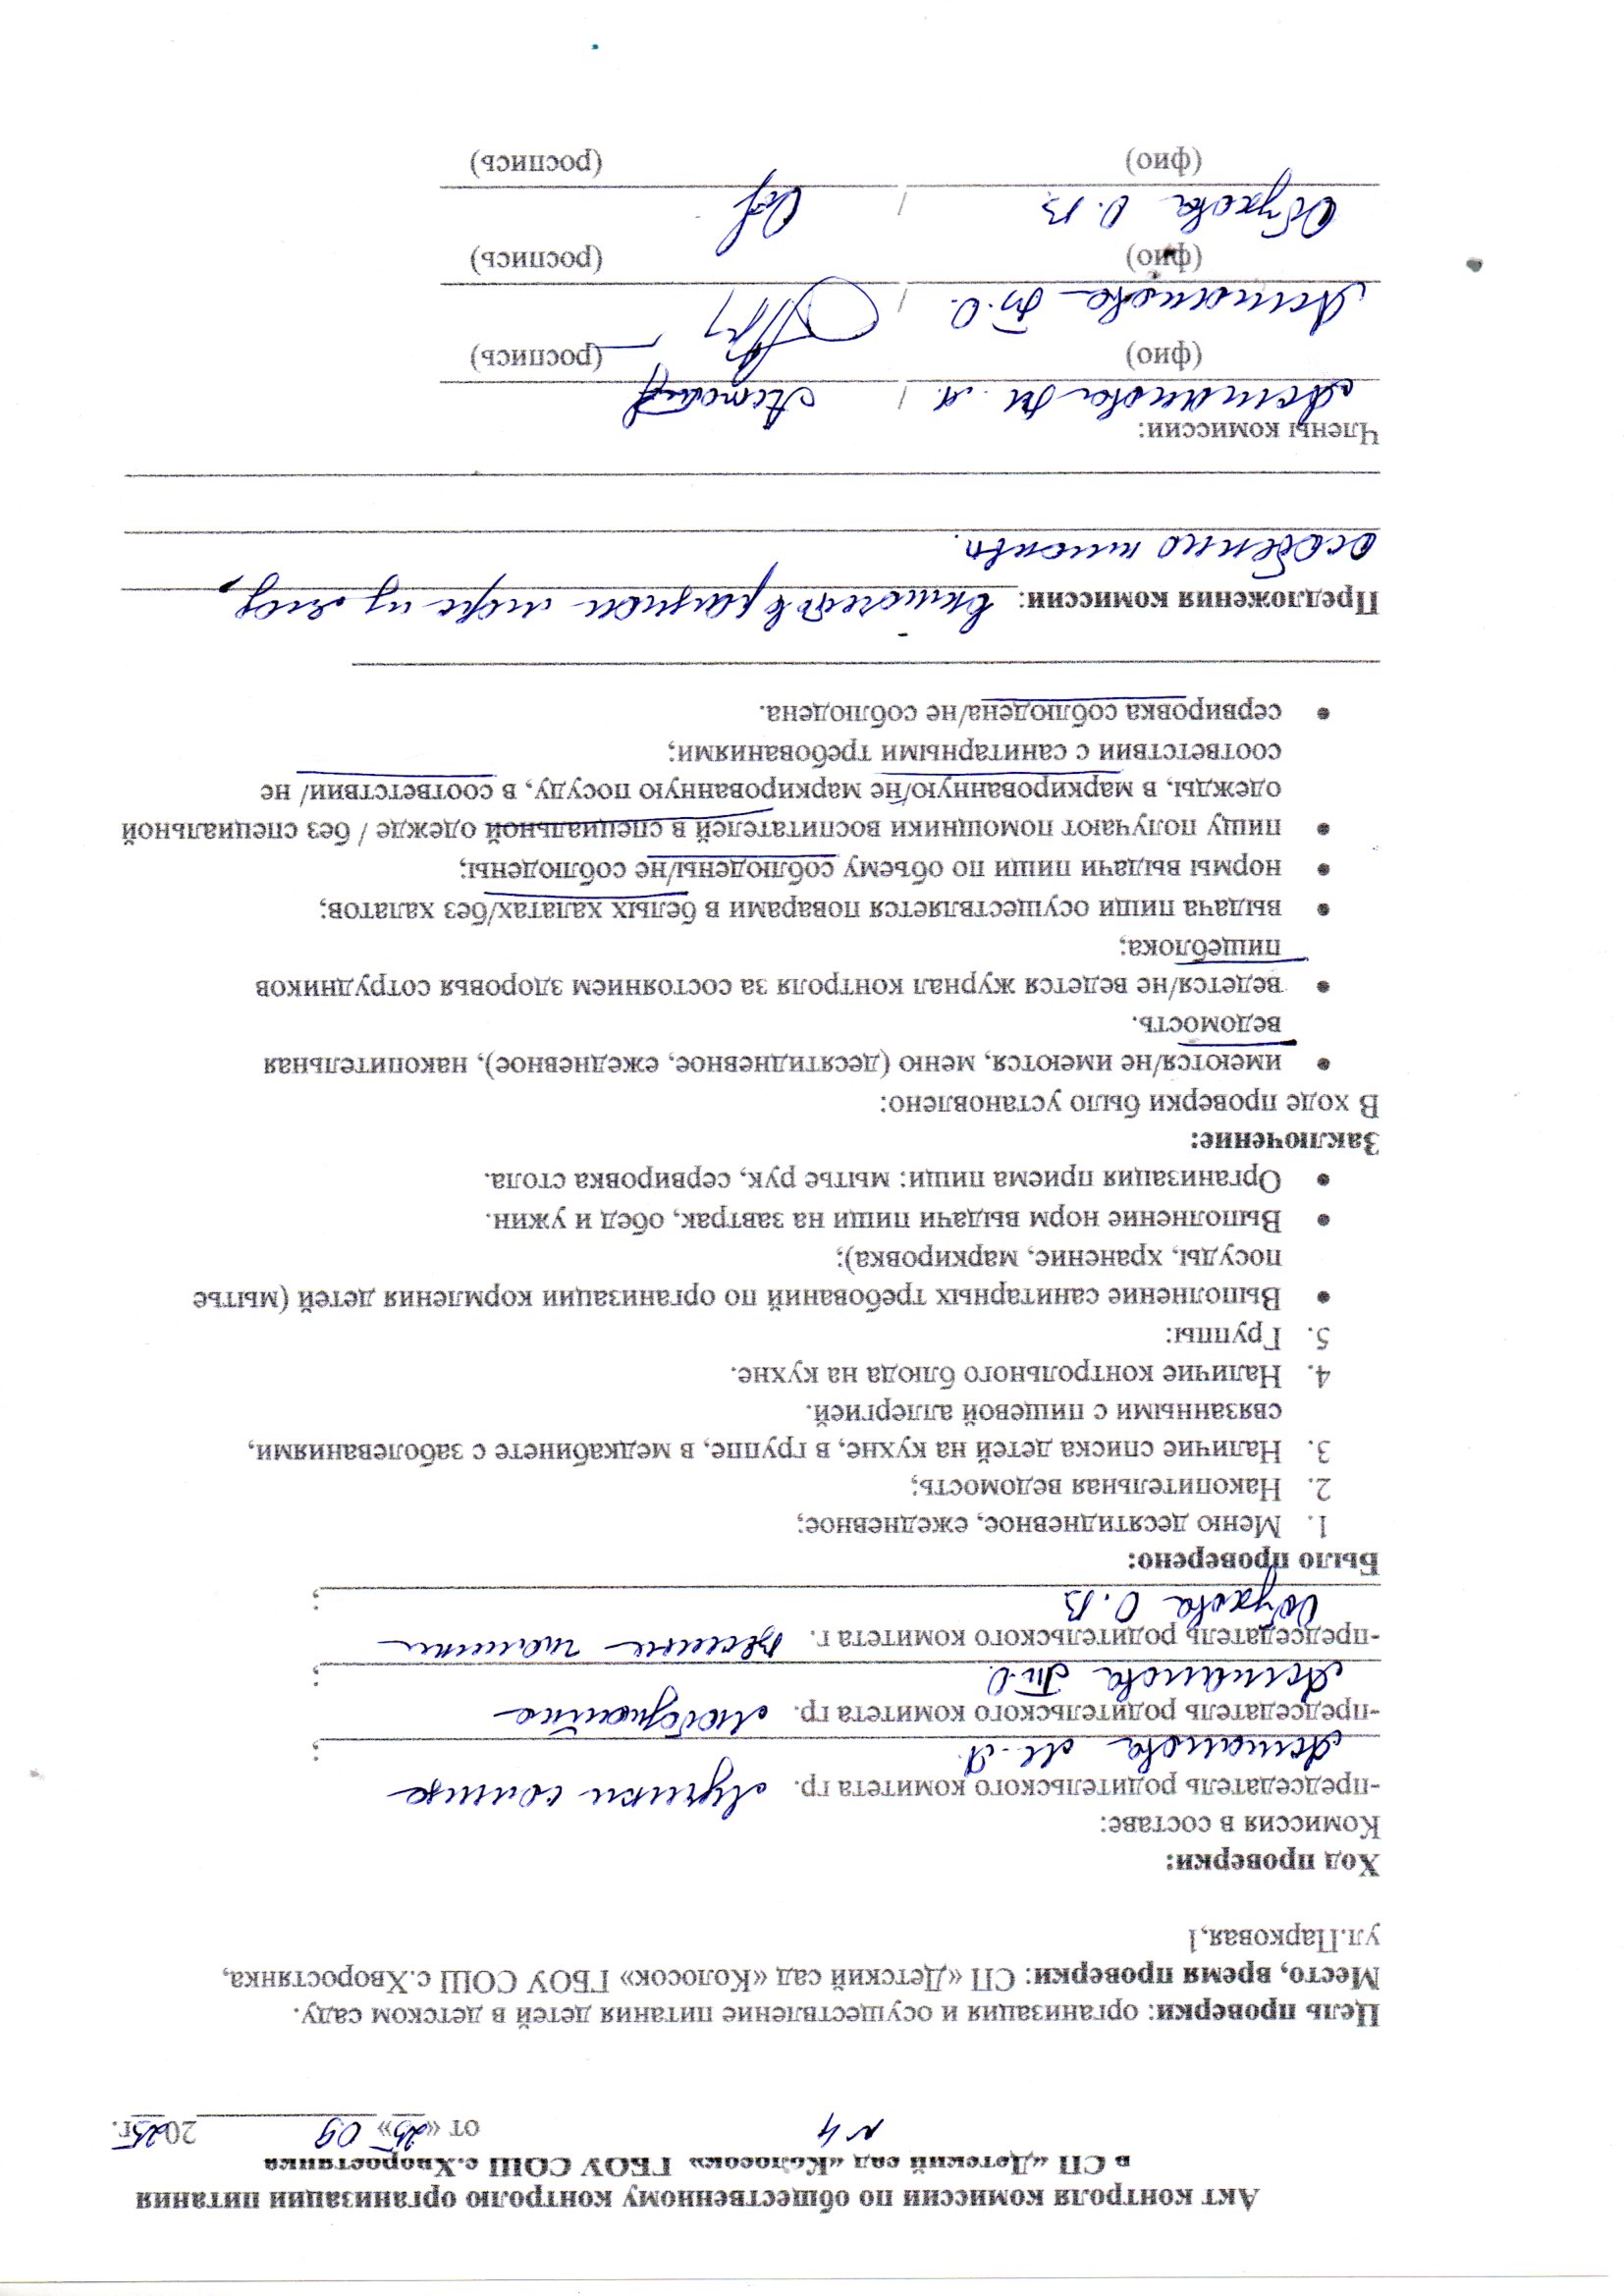 Акт контроля комиссии по общественному контролю организации питания
в СП «Детский сад «Колосок» ГБОУ СОШ с.Хворостянка
№ 4 от «25» 09 2025г.
Цель проверки: организация и осуществление питания детей в детском саду.
Место, время проверки: СП «Детский сад «Колосок» ГБОУ СОШ с.Хворостянка,
ул.Парковая,1
Ход проверки:
Комиссия в составе:
-председатель родительского комитета гр. Лучики солнце
Астанкова М.А. ;
-председатель родительского комитета гр.
Астанкова Т.О. ;
-председатель родительского комитета г.
Обухова О.В ;
Было проверено:
1. Меню десятидневное, ежедневное;
2. Накопительная ведомость;
3. Наличие списка детей на кухне, в группе, в медкабинете с заболеваниями,
связанными с пищевой аллергией.
4. Наличие контрольного блюда на кухне.
5. Группы:
• Выполнение санитарных требований по организации кормления детей (мытье
посуды, хранение, маркировка);
• Выполнение норм выдачи пищи на завтрак, обед и ужин.
• Организация приема пищи: мытье рук, сервировка стола.
Заключение:
В ходе проверки было установлено:
• имеются/не имеются, меню (десятидневное, ежедневное), накопительная
ведомость.
• ведется/не ведется журнал контроля за состоянием здоровья сотрудников
пищеблока;
• выдача пищи осуществляется поварами в белых халатах/без халатов;
• нормы выдачи пищи по объему соблюдены/не соблюдены;
• пищу получают помощники воспитателей в специальной одежде / без специальной
одежды, в маркированную/не маркированную посуду, в соответствии/ не
соответствии с санитарными требованиями;
• сервировка соблюдена/не соблюдена.
Предложения комиссии: включить в рацион
особенно
Члены комиссии:
Астанкова М.А. /
(фио) (роспись)
Астанкова Т.О. /
(фио) (роспись)
Обухова О.В /
(фио) (роспись)